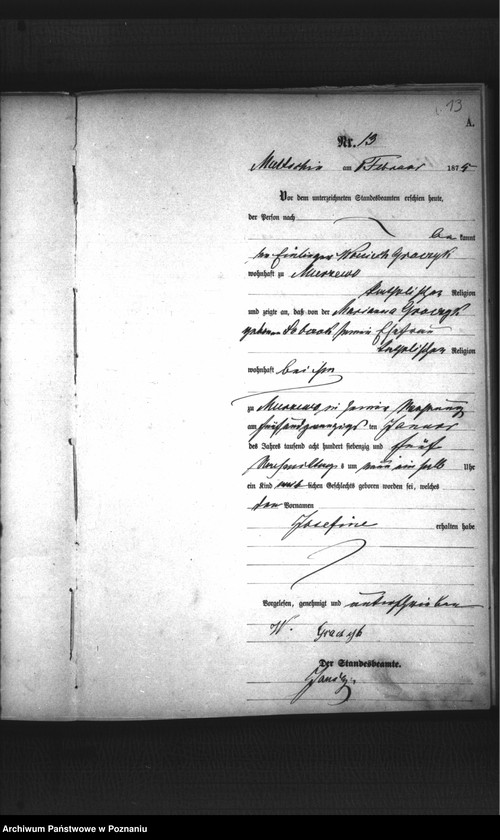 13
A.
Nr. 13
am Februar 1875
Vor dem unterzeichneten Standesbeamten erschien heute,
der Person nach
be kannt
der Einlieger
wohnhaft zu Murzewo
katholischer Religion
und zeigte an, daß von der Marianna
geborenen seiner Ehefrau
katholischer Religion
wohnhaft bei ihm
zu Murzewo in seiner Wohnung
am fünfundzwanzigsten Januar
des Jahres tausend acht hundert siebenzig und fünf
Nachmittags um neun ein halb Uhr
ein Kind weib lichen Geschlechts geboren worden sei, welches
den Vornamen
Josefine erhalten habe
Vorgelesen, genehmigt und unterschrieben
W.
Der Standesbeamte.
Archiwum Państwowe w Poznaniu